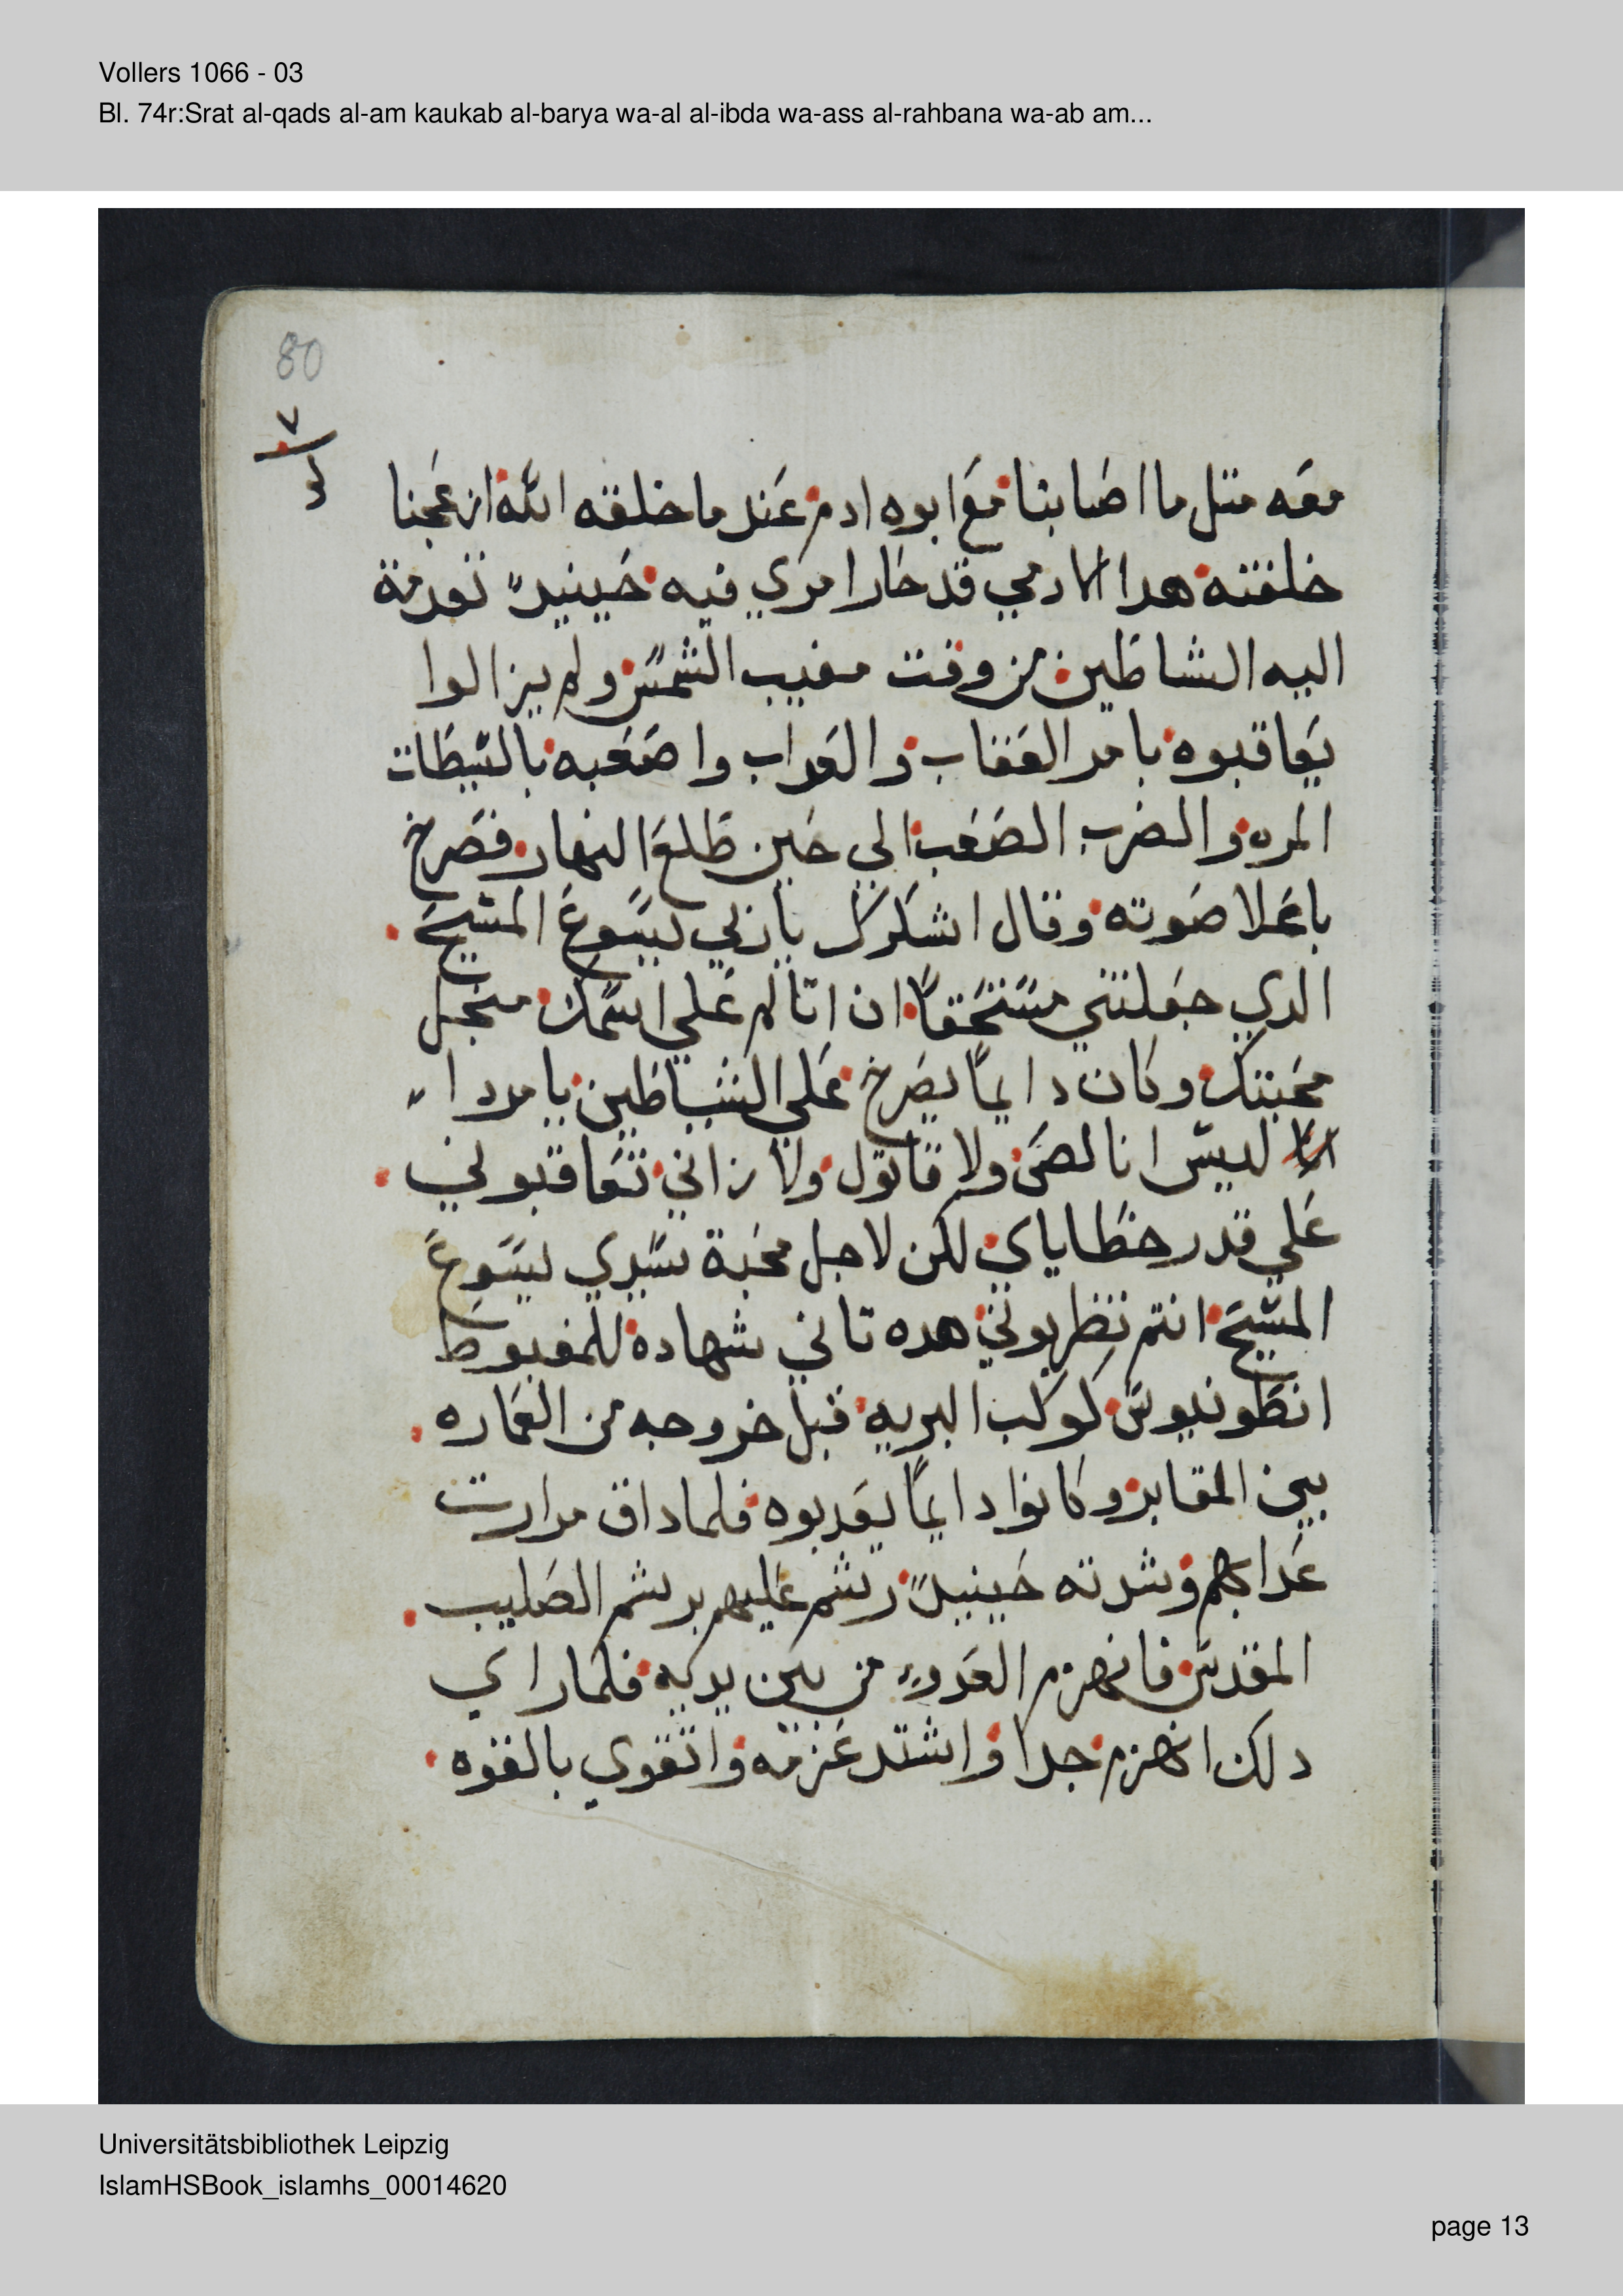 Vollers 1066 - 03
Bl. 74r:Srat al-qads al-am kaukab al-barya wa-al al-ibda wa-ass al-rahbana wa-ab am...
80
معه متل ما اصابنا مع ابوه ادم عند ما خلقه الله ازعجنا
خلقته هدا الادمي قد حار امري فيه حينيدٍ تقدمة
اليه الشاطين من وقت مغيب الشمس ولم يزالوا
يعاقبوه بامر العقاب والعداب واصعبه بالشيطات
المره والضرب الصعب الي حين طلع النهار فصرخ
باعلا صوته وقال اشكرك يا ربي يسوع المسيح
الدي جعلتني مستحقاً ان اتالم علي اسمك منجل
محبتك وكان دايماً يصرخ علي الشياطين يا مردا
ليس انا لص ولا قاتول ولا زاني تعاقبوني
علي قدر خطاياي لكن لاجل محبة سيدي يسوع
المسيح انتم تضربوني هده تاني شهادة للمغبوط
انطونيوس كوكب البريه قبل خروجه من العماره
بين المقابر وكانوا دايماً يعدبوه فلما داق مرارت
عدابهم وشدته حينيدٍ رشم عليهم برشم الصليب
المقدس فانهزم العدو من بين يديه فلما راي
دلك انهزم جدا واشتد عزمه واتقوي بالقوه
Universitätsbibliothek Leipzig
IslamHSBook_islamhs_00014620
page 13